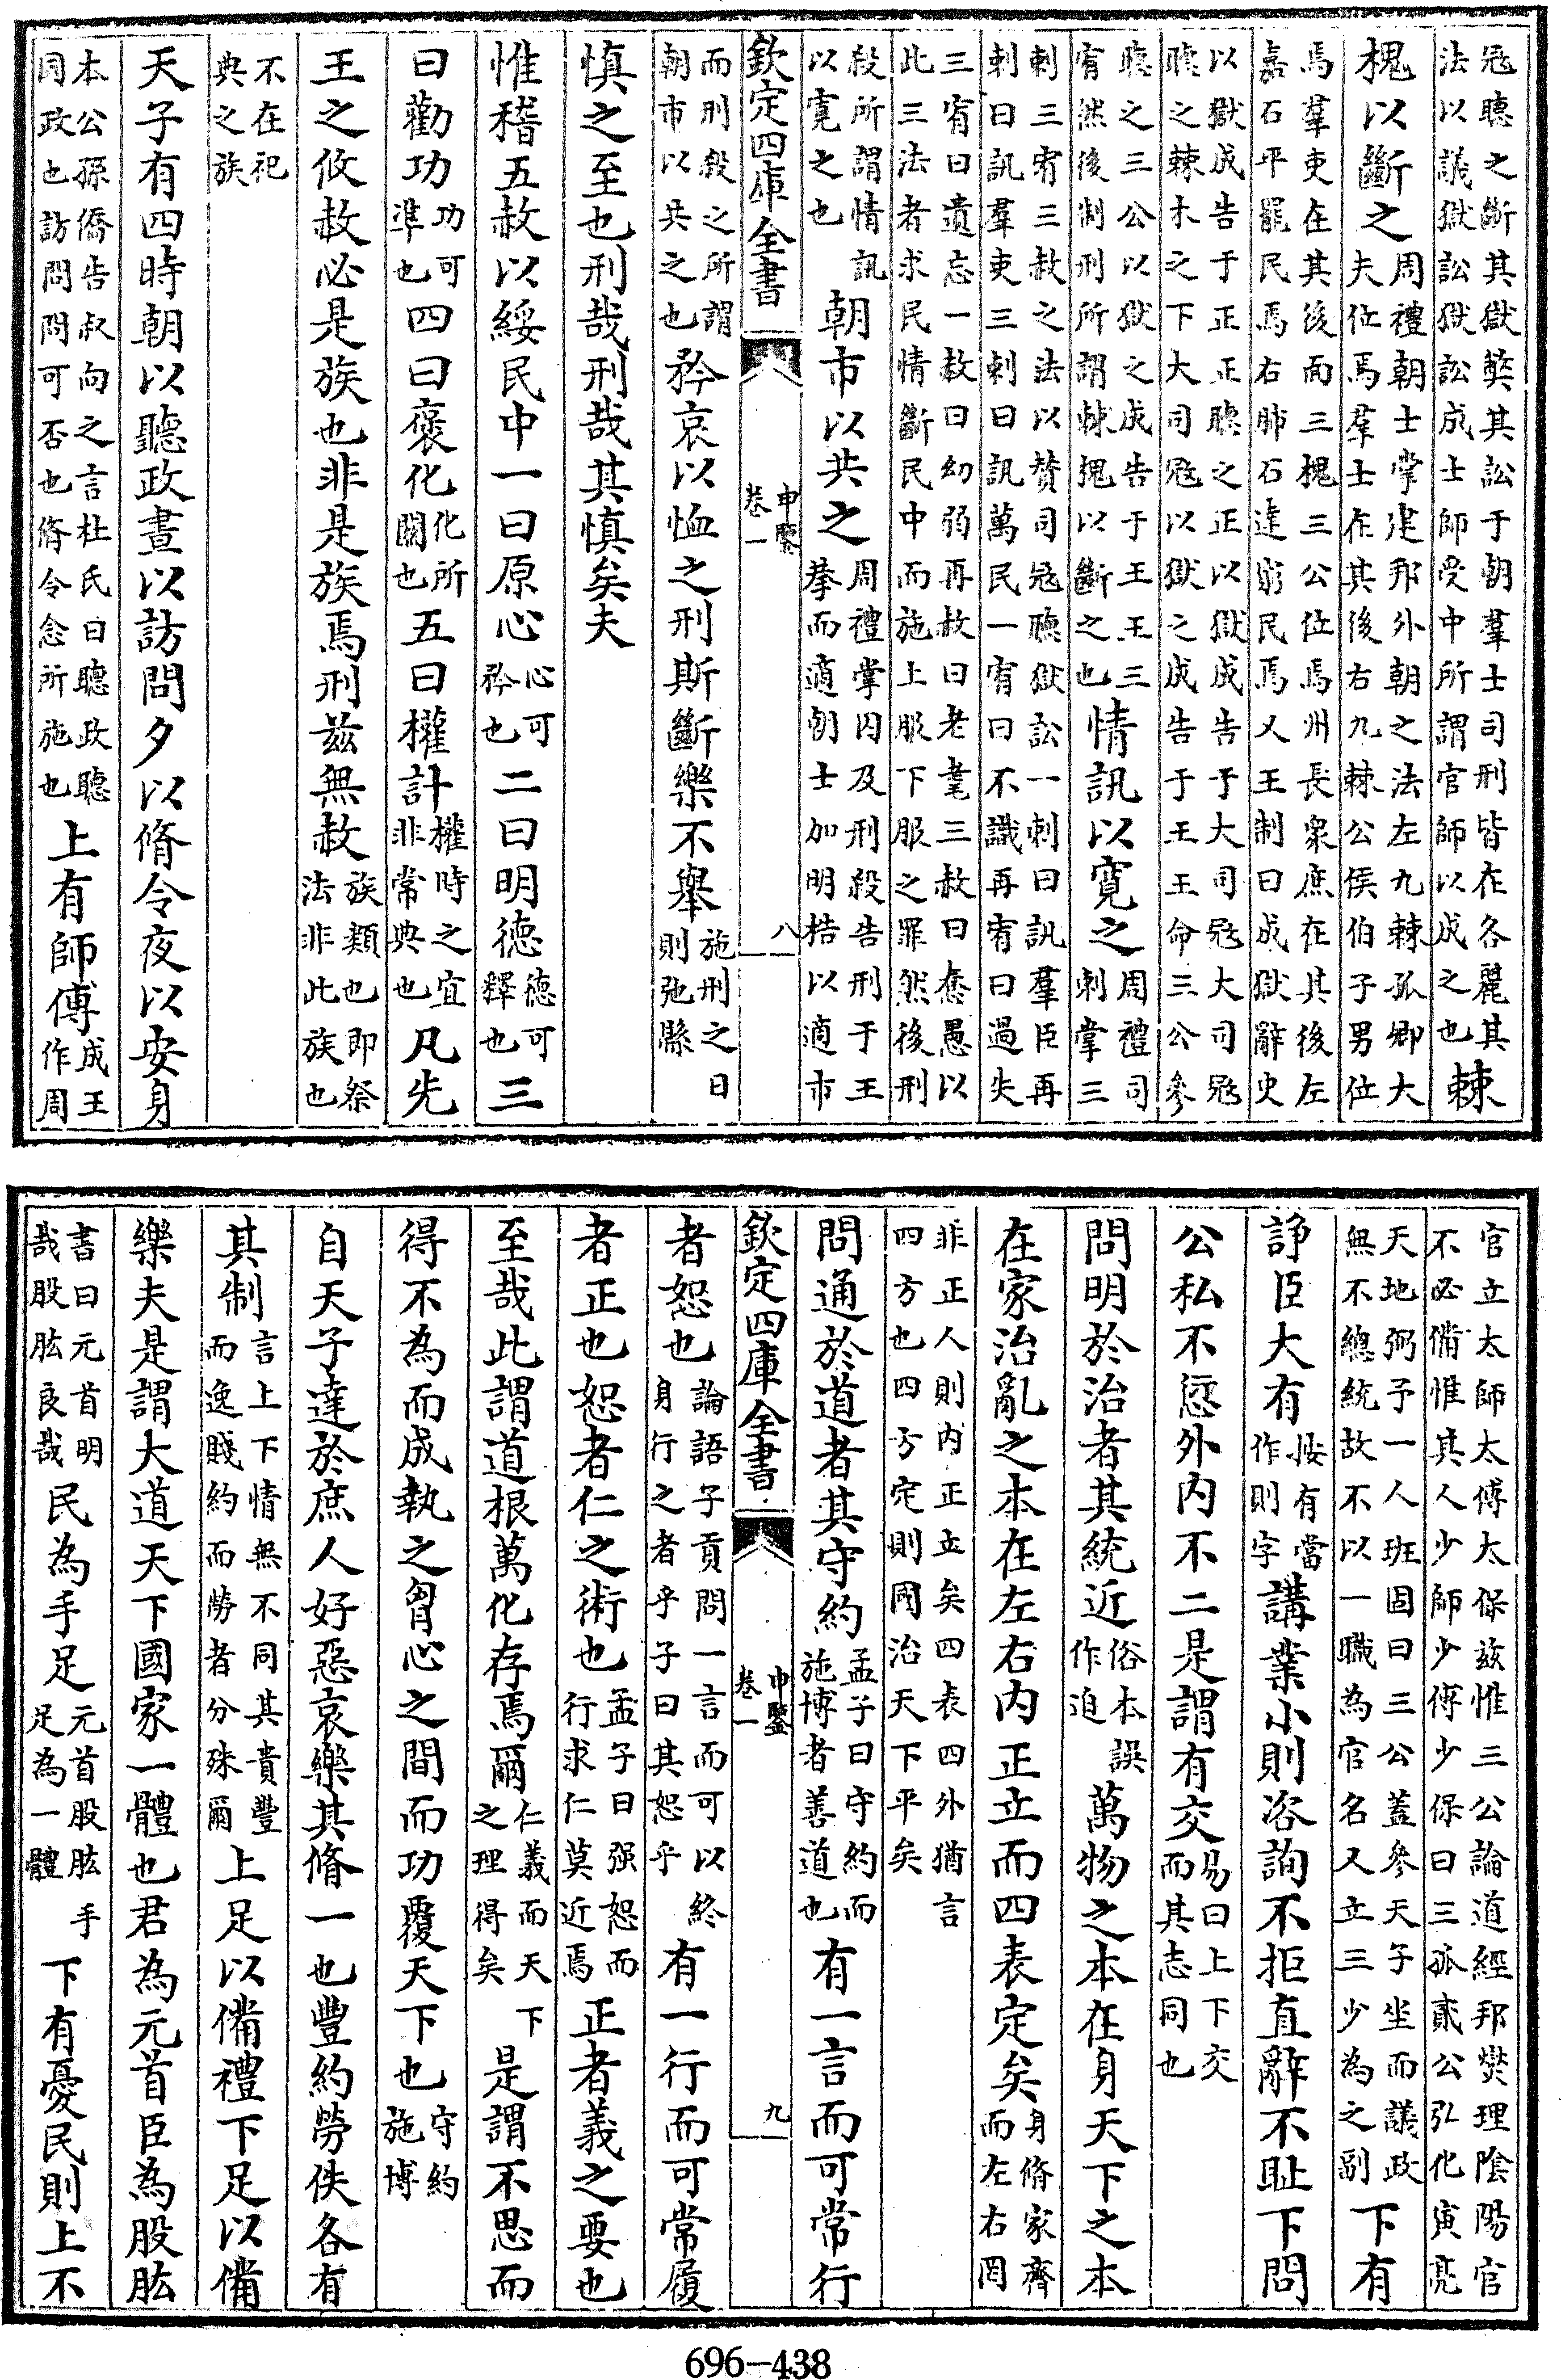 冦聽之斷其獄獘其訟于朝羣士司刑皆在各麗其法以議獄訟獄訟成士師受中所謂官師以成之也棘
槐以斷之周禮朝士掌建邦外朝之法左九棘孤卿大夫位焉羣士在其後右九棘公侯伯子男位
焉羣吏在其後面三槐三公位焉州長衆庶在其後左嘉石平罷民焉右肺石達窮民焉又王制曰成獄辭史
以獄成告于正正聽之正以獄成告于大司冦大司冦聽之棘木之下大司冦以獄之成告于王王命三公參
聽之三公以獄之成告于王王三宥然後制刑所謂棘槐以斷之也情訊以寛之周禮司刺掌三
刺三宥三赦之法以賛司冦聽獄訟一刺曰訊羣臣再刺曰訊羣吏三刺曰訊萬民一宥曰不識再宥曰過失
三宥曰遺忘一赦曰幼弱再赦曰老耄三赦曰惷愚以此三法者求民情斷民中而施上服下服之罪然後刑
殺所謂情訊以寛之也朝市以共之周禮掌囚及刑殺告刑于王拲而適朝士加明梏以適市
欽定四庫全書 申鑒 卷一 八
而刑殺之所謂朝市以共之也矜哀以恤之刑斯斷樂不舉施刑之日則弛縣
慎之至也刑哉刑哉其慎矣夫
惟稽五赦以綏民中一曰原心心可矜也二曰明德德可釋也三
曰勸功功可準也四曰褒化化所關也五曰權計權時之宜非常典也凡先
王之攸赦必是族也非是族焉刑兹無赦族類也即祭法非此族也
不在祀典之族
天子有四時朝以聽政晝以訪問夕以脩令夜以安身
本公孫僑告叔向之言杜氏曰聽政聽同政也訪問問可否也脩令念所施也上有師傅成王作周
官立太師太傅太保兹惟三公論道經邦爕理陰陽官不必備惟其人少師少傅少保曰三孤貳公弘化寅亮
天地弼予一人班固曰三公蓋參天子坐而議政無不總統故不以一職為官名又立三少為之副下有
諍臣大有按有當作則字講業小則咨詢不拒直辭不恥下問
公私不愆外内不二是謂有交易曰上下交而其志同也
問明於治者其統近俗本誤作迫萬物之本在身天下之本
在家治亂之本在左右内正立而四表定矣身脩家齊而左右罔
非正人則内正立矣四表四外猶言四方也四方定則國治天下平矣
問通於道者其守約孟子曰守約而施博者善道也有一言而可常行
欽定四庫全書 申鑒 卷一 九
者恕也論語子貢問一言而可以終身行之者乎子曰其恕乎有一行而可常履
者正也恕者仁之術也孟子曰强恕而行求仁莫近焉正者義之要也
至哉此謂道根萬化存焉爾仁義而天下之理得矣是謂不思而
得不為而成執之胷心之間而功覆天下也守約施博
自天子達於庶人好惡哀樂其脩一也豐約勞佚各有
其制言上下情無不同其貴豐而逸賤約而勞者分殊爾上足以備禮下足以備
樂夫是謂大道天下國家一體也君為元首臣為股肱
書曰元首明哉股肱良哉民為手足元首股肱手足為一體下有憂民則上不
696-438